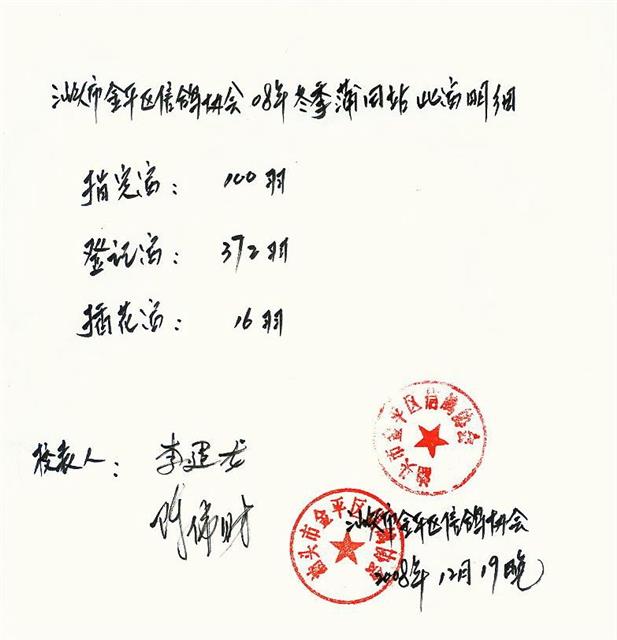 汕头市金平区信鸽协会 08年冬季蒲圻站比赛明细
指定赛： 100羽
登记赛： 372羽
插花赛： 16羽
汕头市金平区信鸽协会
人： 李建龙
陈伟财
汕头市金平区信鸽协会
汕头市金平区信鸽协会
2008年12月19晚